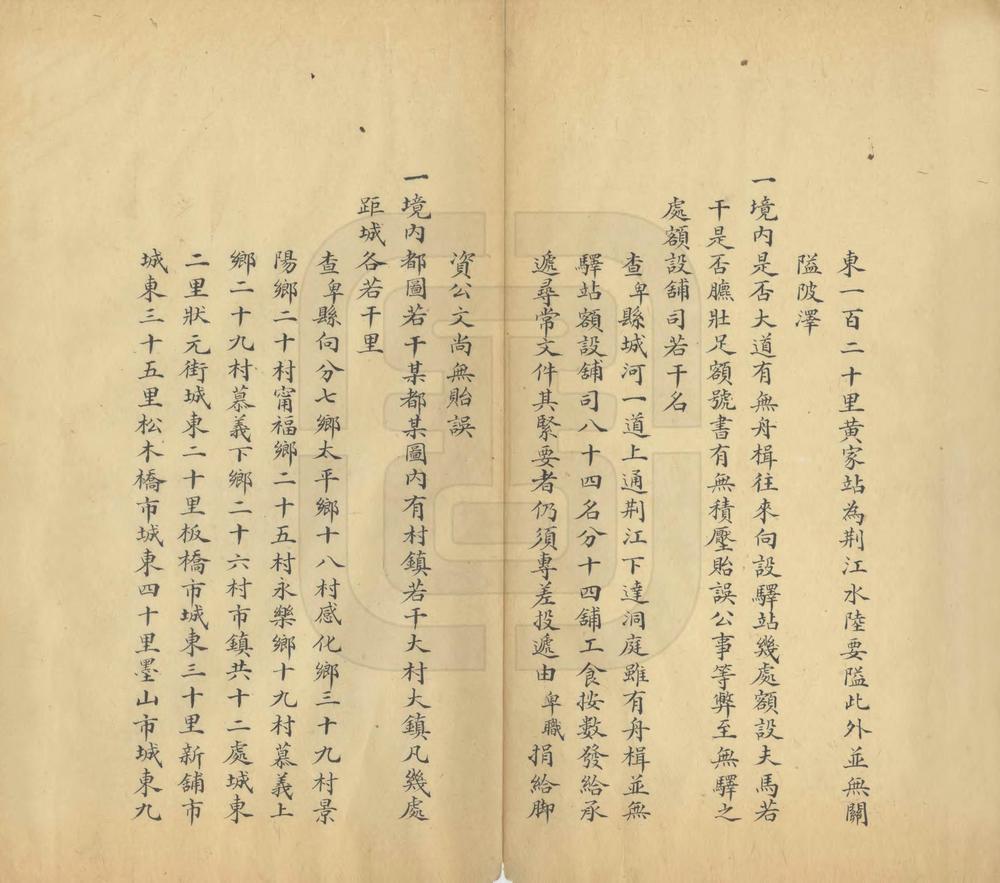 東一百二十里黄家站為荆江水陸要隘此外並無關
隘陂澤
一境內是否大道有無舟楫往來向設驛站幾處額設夫馬若
干是否臕壯足額號書有無積壓貽誤公事等弊至無驛之
處額設舖司若干名
查卑縣城河一道上通荆江下達洞庭雖有舟楫並無
驛站額設舖司八十四名分十四舖工食按數發給承
遞尋常文件其緊要者仍須專差投遞由卑職捐給脚
資公文尚無貽誤
一境內都圖若干某都某圖內有村鎮若干大村大鎮凡幾處
距城各若干里
查卑縣向分七鄉太平鄉十八村感化鄉三十九村景
陽鄉二十村甯福鄉二十五村永樂鄉十九村慕義上
鄉二十九村慕義下鄉二十六村市鎮共十二處城東
二里狀元街城東二十里板橋市城東三十里新舖市
城東三十五里松木橋市城東四十里墨山市城東九